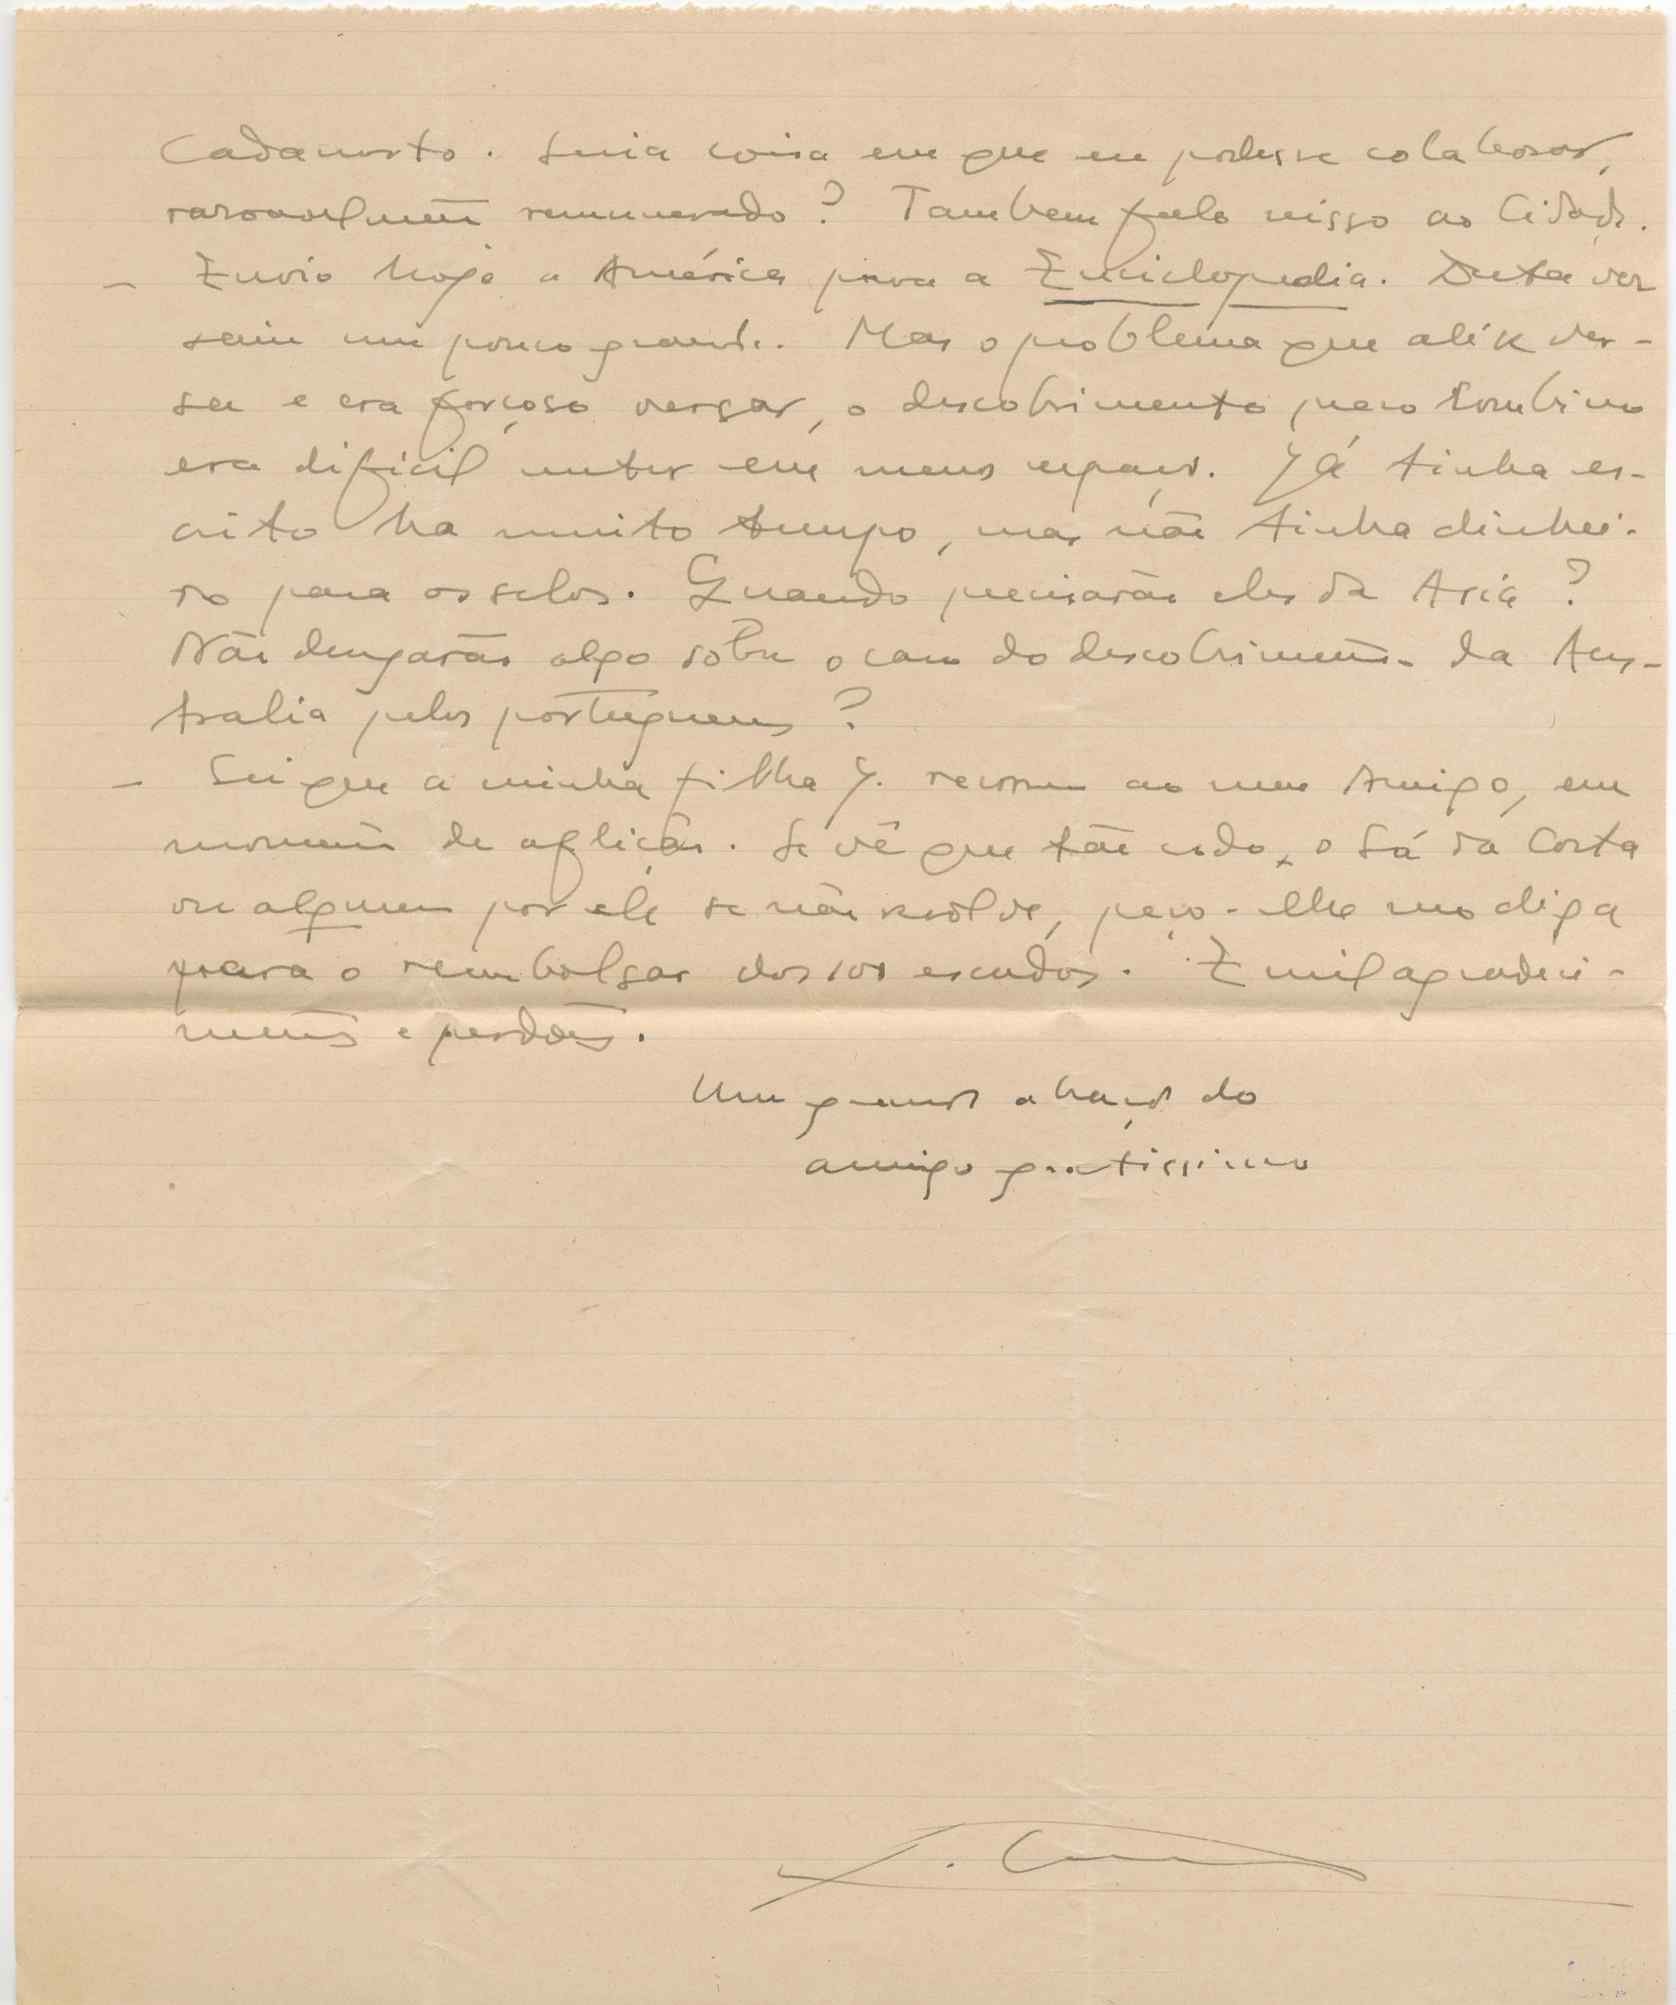 Cadamosto. Seria coisa em que eu podesse colaborar,
razoavelmente remunerado? Tambem falo nisso ao Cidade.
– Envio hoje a América para a Enciclopedia. Desta vez
saiu um pouco grande. Mas o problema que ali se ver-
sa e era forçoso versar, o descobrimento precolombino
era dificil meter em menos espaço. Já tinha es-
crito ha muito tempo, mas não tinha dinhei-
ro para os selos. Quando precisarão eles da Asia?
Não desejarão algo sôbre o caso do descobrimento da Aus-
tralia pelos portugueses?
– Sei que a minha filha J. recorreu ao meu Amigo, em
momento de aflição. Se vê que tão cedo, o Sá da Costa
ou alguem por ele se não resolve, peço-lhe mo diga
para o rembolsar dos 100 escudos. E mil agradeci-
mentos e perdões.
Um grande abraço do
amigo gratissimo